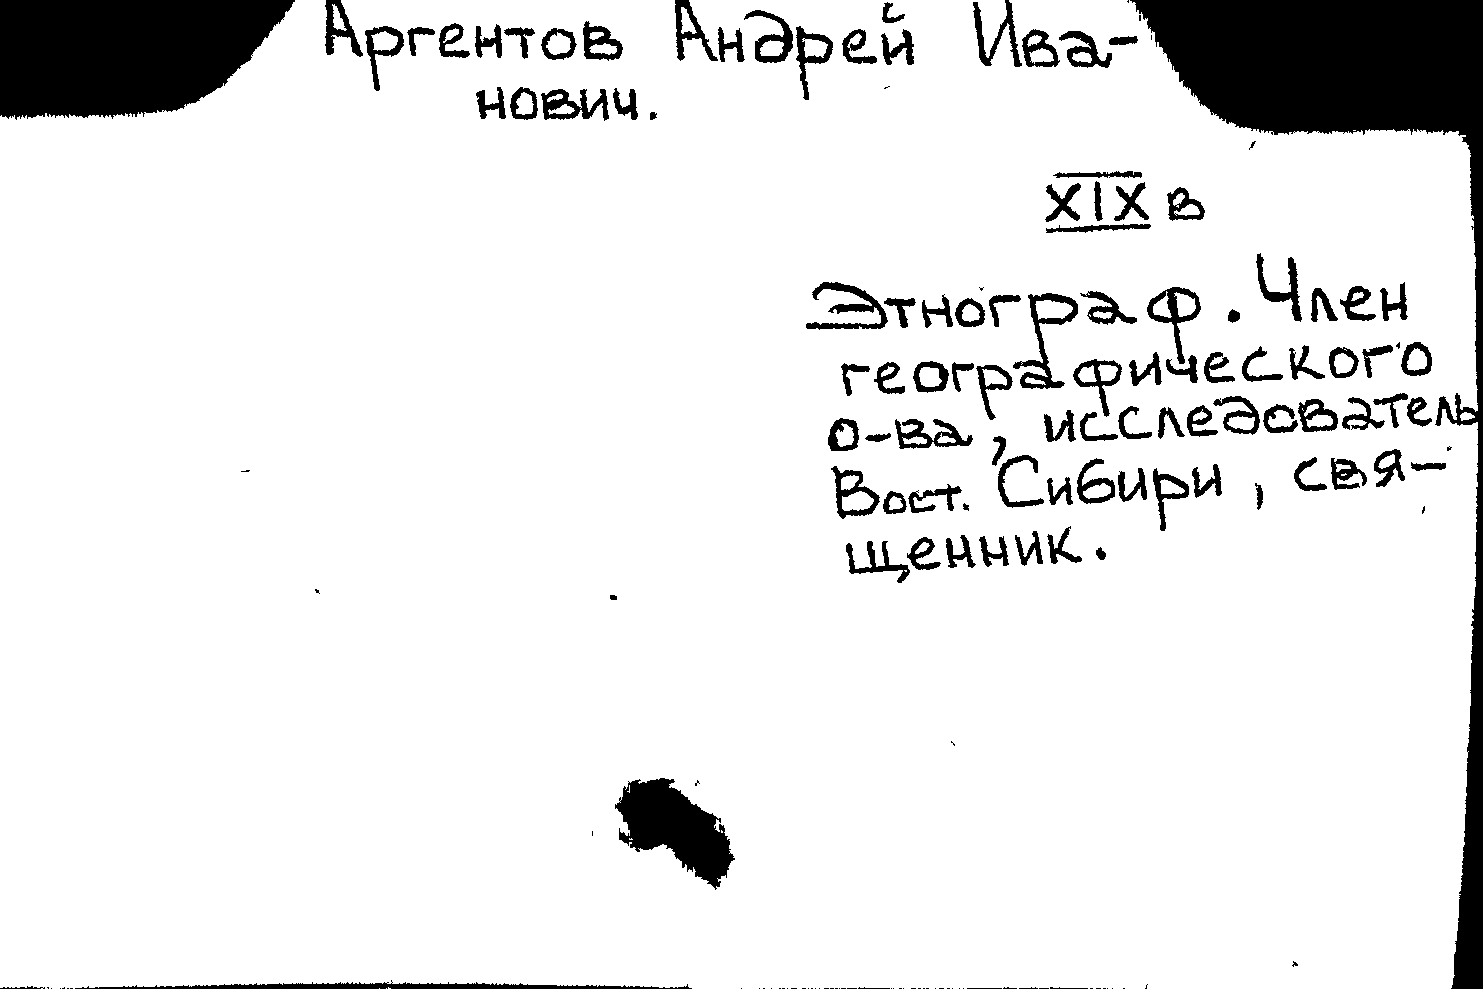 Аргентов Андрей Ива-
нович.
XIX в
Этнограф. Член
географического
о-ва, исследователь
Вост. Сибири, свя-
щенник.